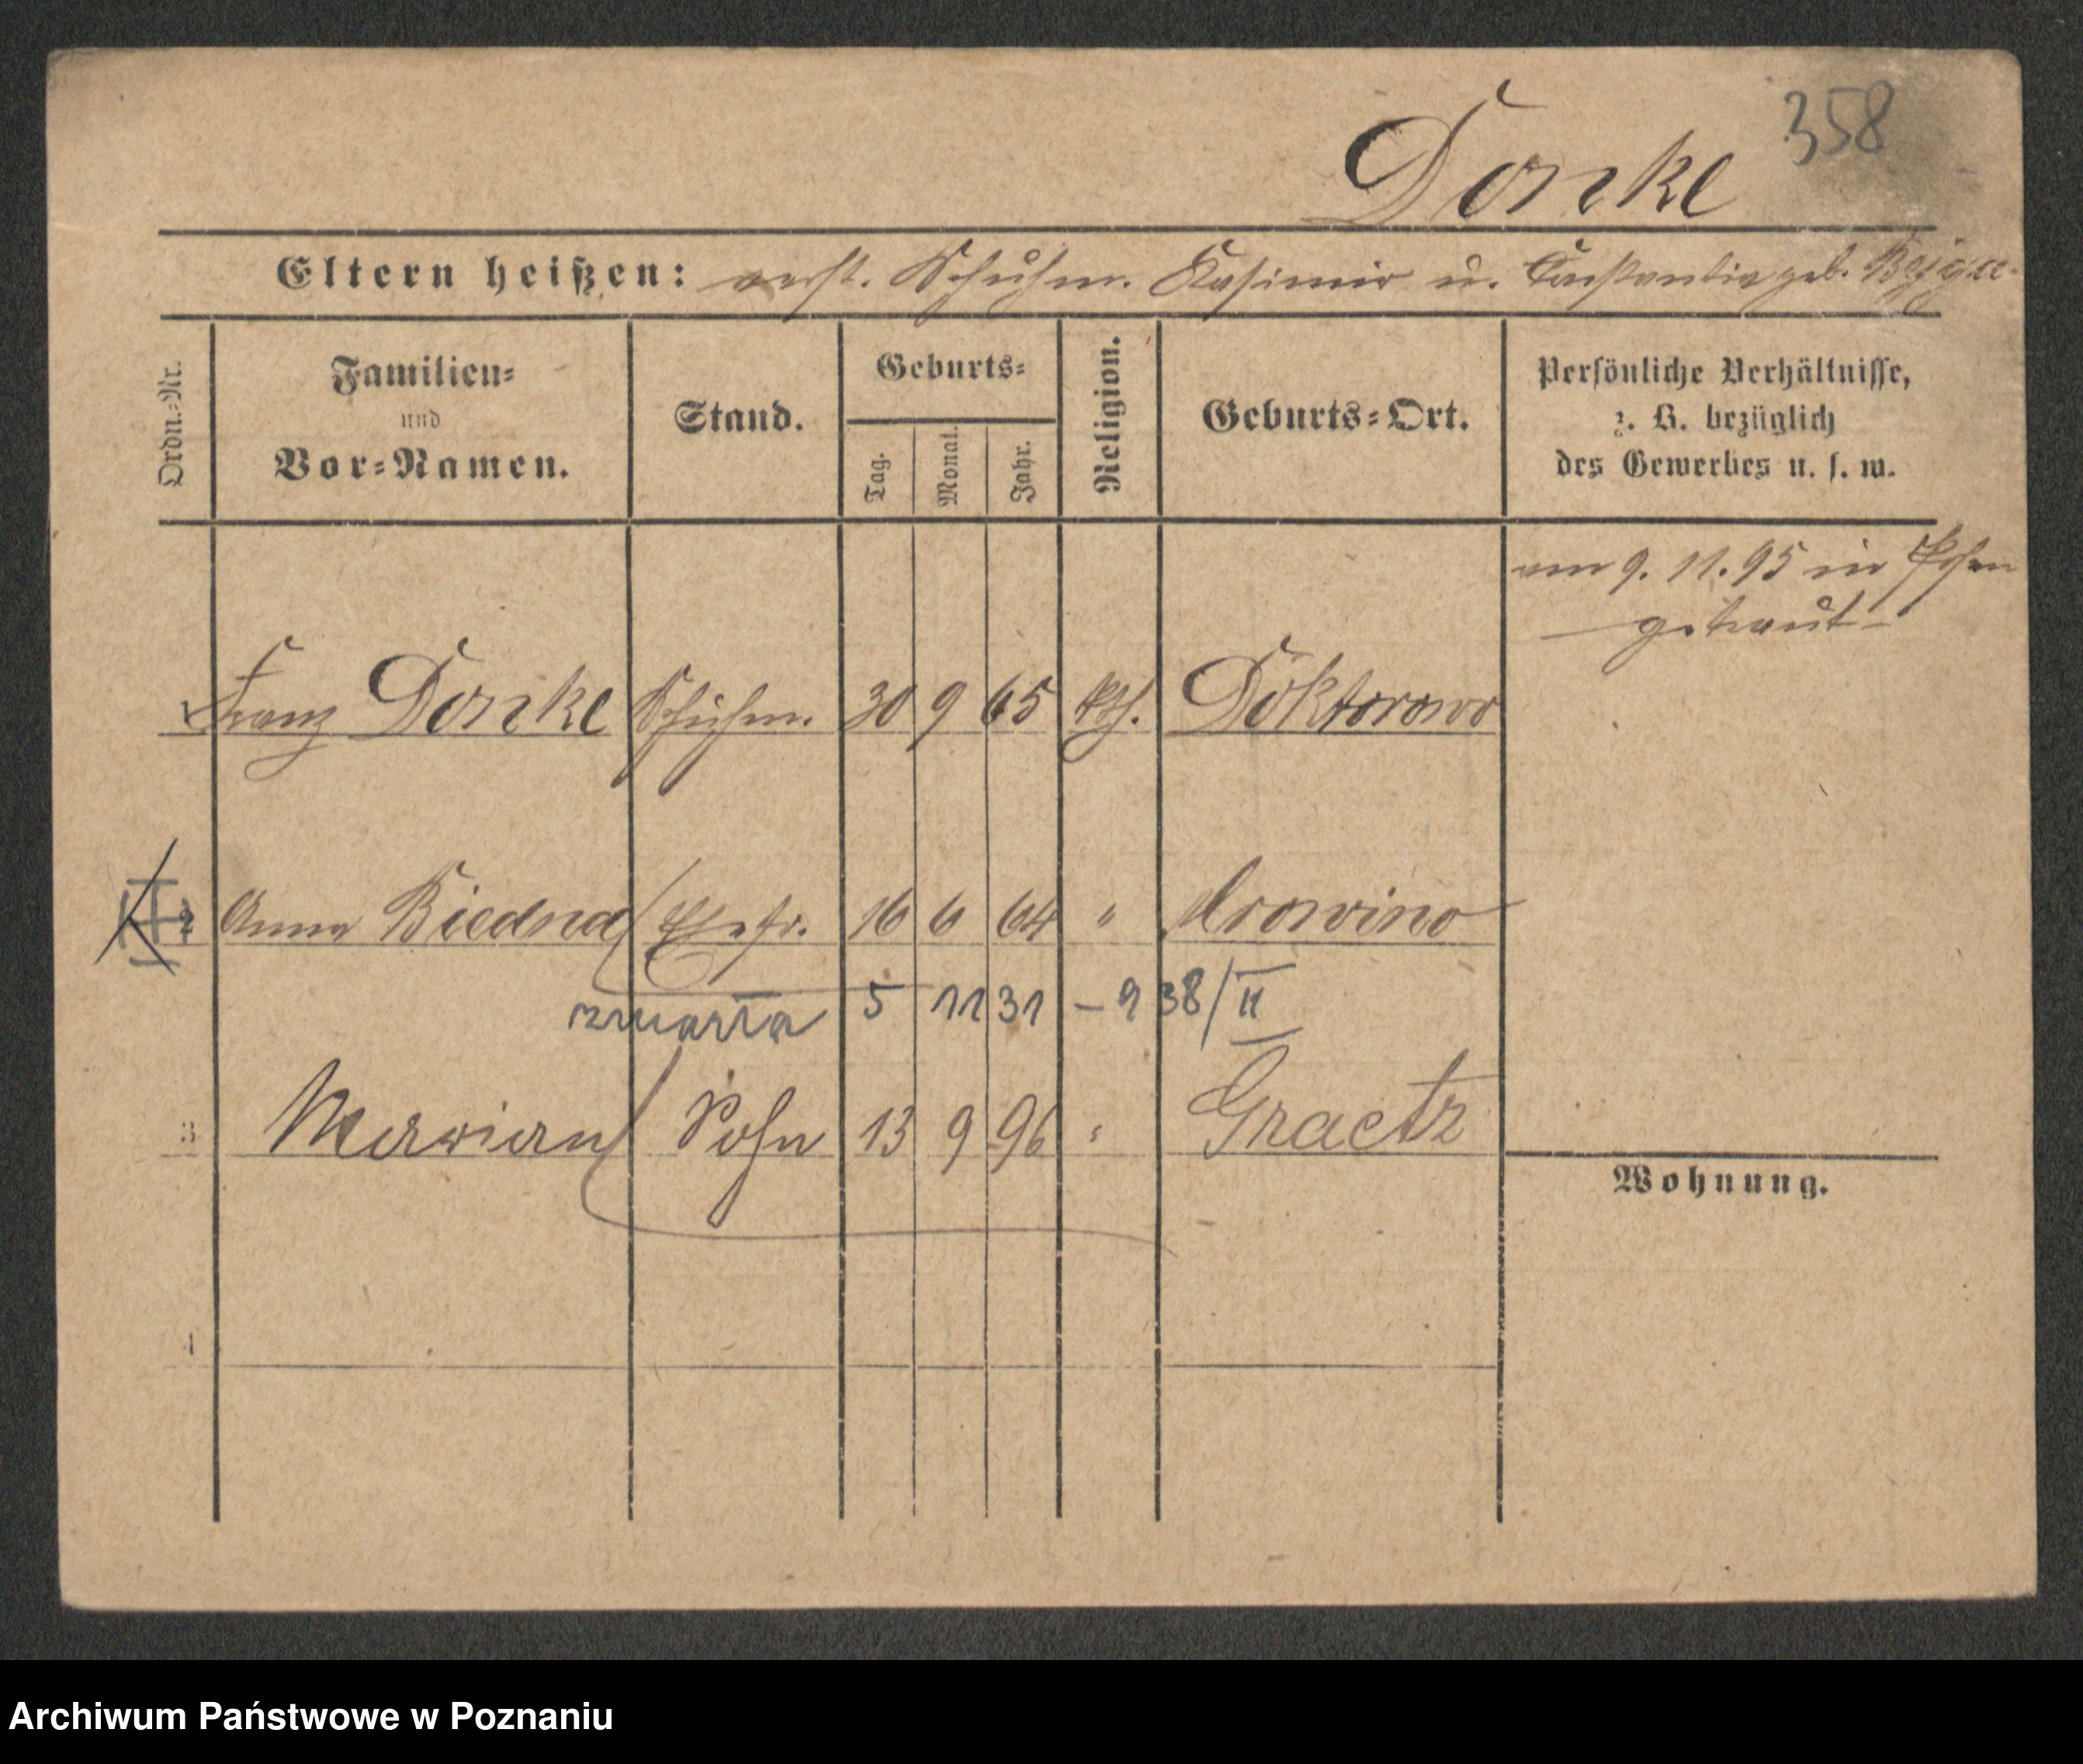 358
Donke
Eltern heißen: verst. Schuhm. Kasimir u. Constantia geb.
Ordn.-Nr.
Familien-
und
Vor-Namen.
Stand.
Geburts-
Tag.
Monat.
Jahr.
Religion.
Geburts-Ort.
Persönliche Verhältnisse,
z. B. bezüglich
des Gewerbes u. s. w.
am 9. 11. 95 in Posen
getraut
Franz Donke Schuhm. 30 9 65 kth. Doktorowo
2 Anna Biedna Ehefr. 16 6 64 " Mrowino
zmarła 5 11 31 – 938/II
3 Maryan Sohn 13 9 96 " Graetz
Wohnung.
4
Archiwum Państwowe w Poznaniu